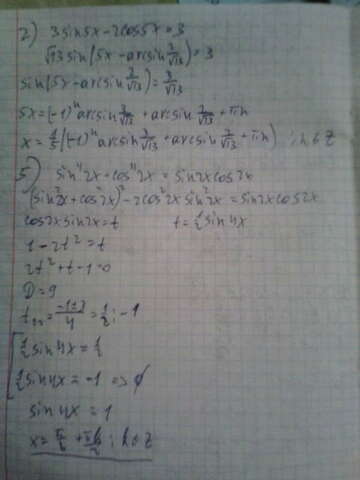 2) 3sin5x-2cos5x=3
√13 sin(5x-arcsin 2/√13)=3
sin(5x-arcsin 2/√13)=3/√13
5x=(-1)^n arcsin 3/√13 + arcsin 2/√13 + πn
x=1/5((-1)^n arcsin 3/√13 + arcsin 2/√13 + πn) ; n∈Z
5) sin^4 2x+cos^4 2x = sin2x cos2x
(sin^2 2x+cos^2 2x)^2-2cos^2 2x sin^2 2x=sin2xcos2x
cos2x sin2x=t t=1/2 sin4x
1-2t^2=t
2t^2+t-1=0
D=9
t₁,₂=(-1±3)/4=1/2; -1
[1/2 sin4x=1/2
1/2 sin4x=-1 => ∅
sin4x=1
x=π/8+πk/2; k∈Z